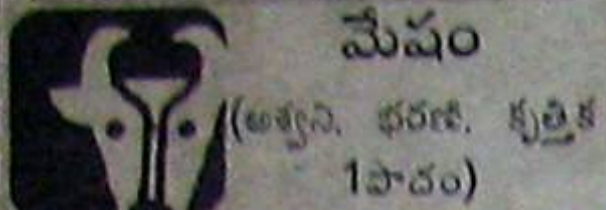 మేషం
(అశ్వని, భరణి, కృత్తిక
1పాదం)